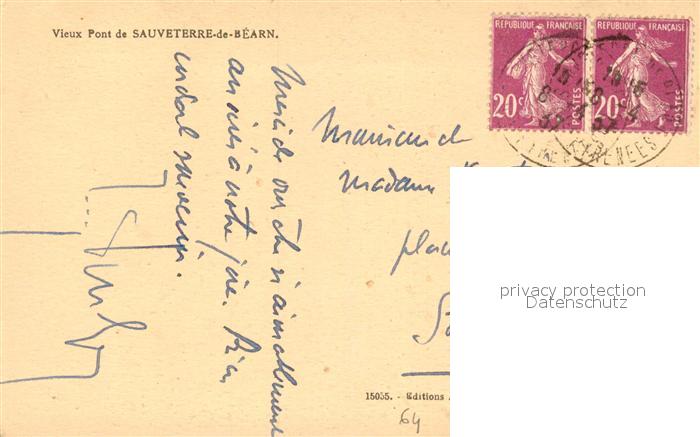 Vieux Pont de SAUVETERRE-de-BÉARN.
REPUBLIQUE FRANÇAISE
20c
POSTES
REPUBLIQUE FRANÇAISE
20c
POSTES
PYRENEES
Merci de vous être si aimablement
associés à notre joie. Bien
cordial souvenir.
Monsieur de
Madame
place
privacy protection
Datenschutz
15035. - Editions
64